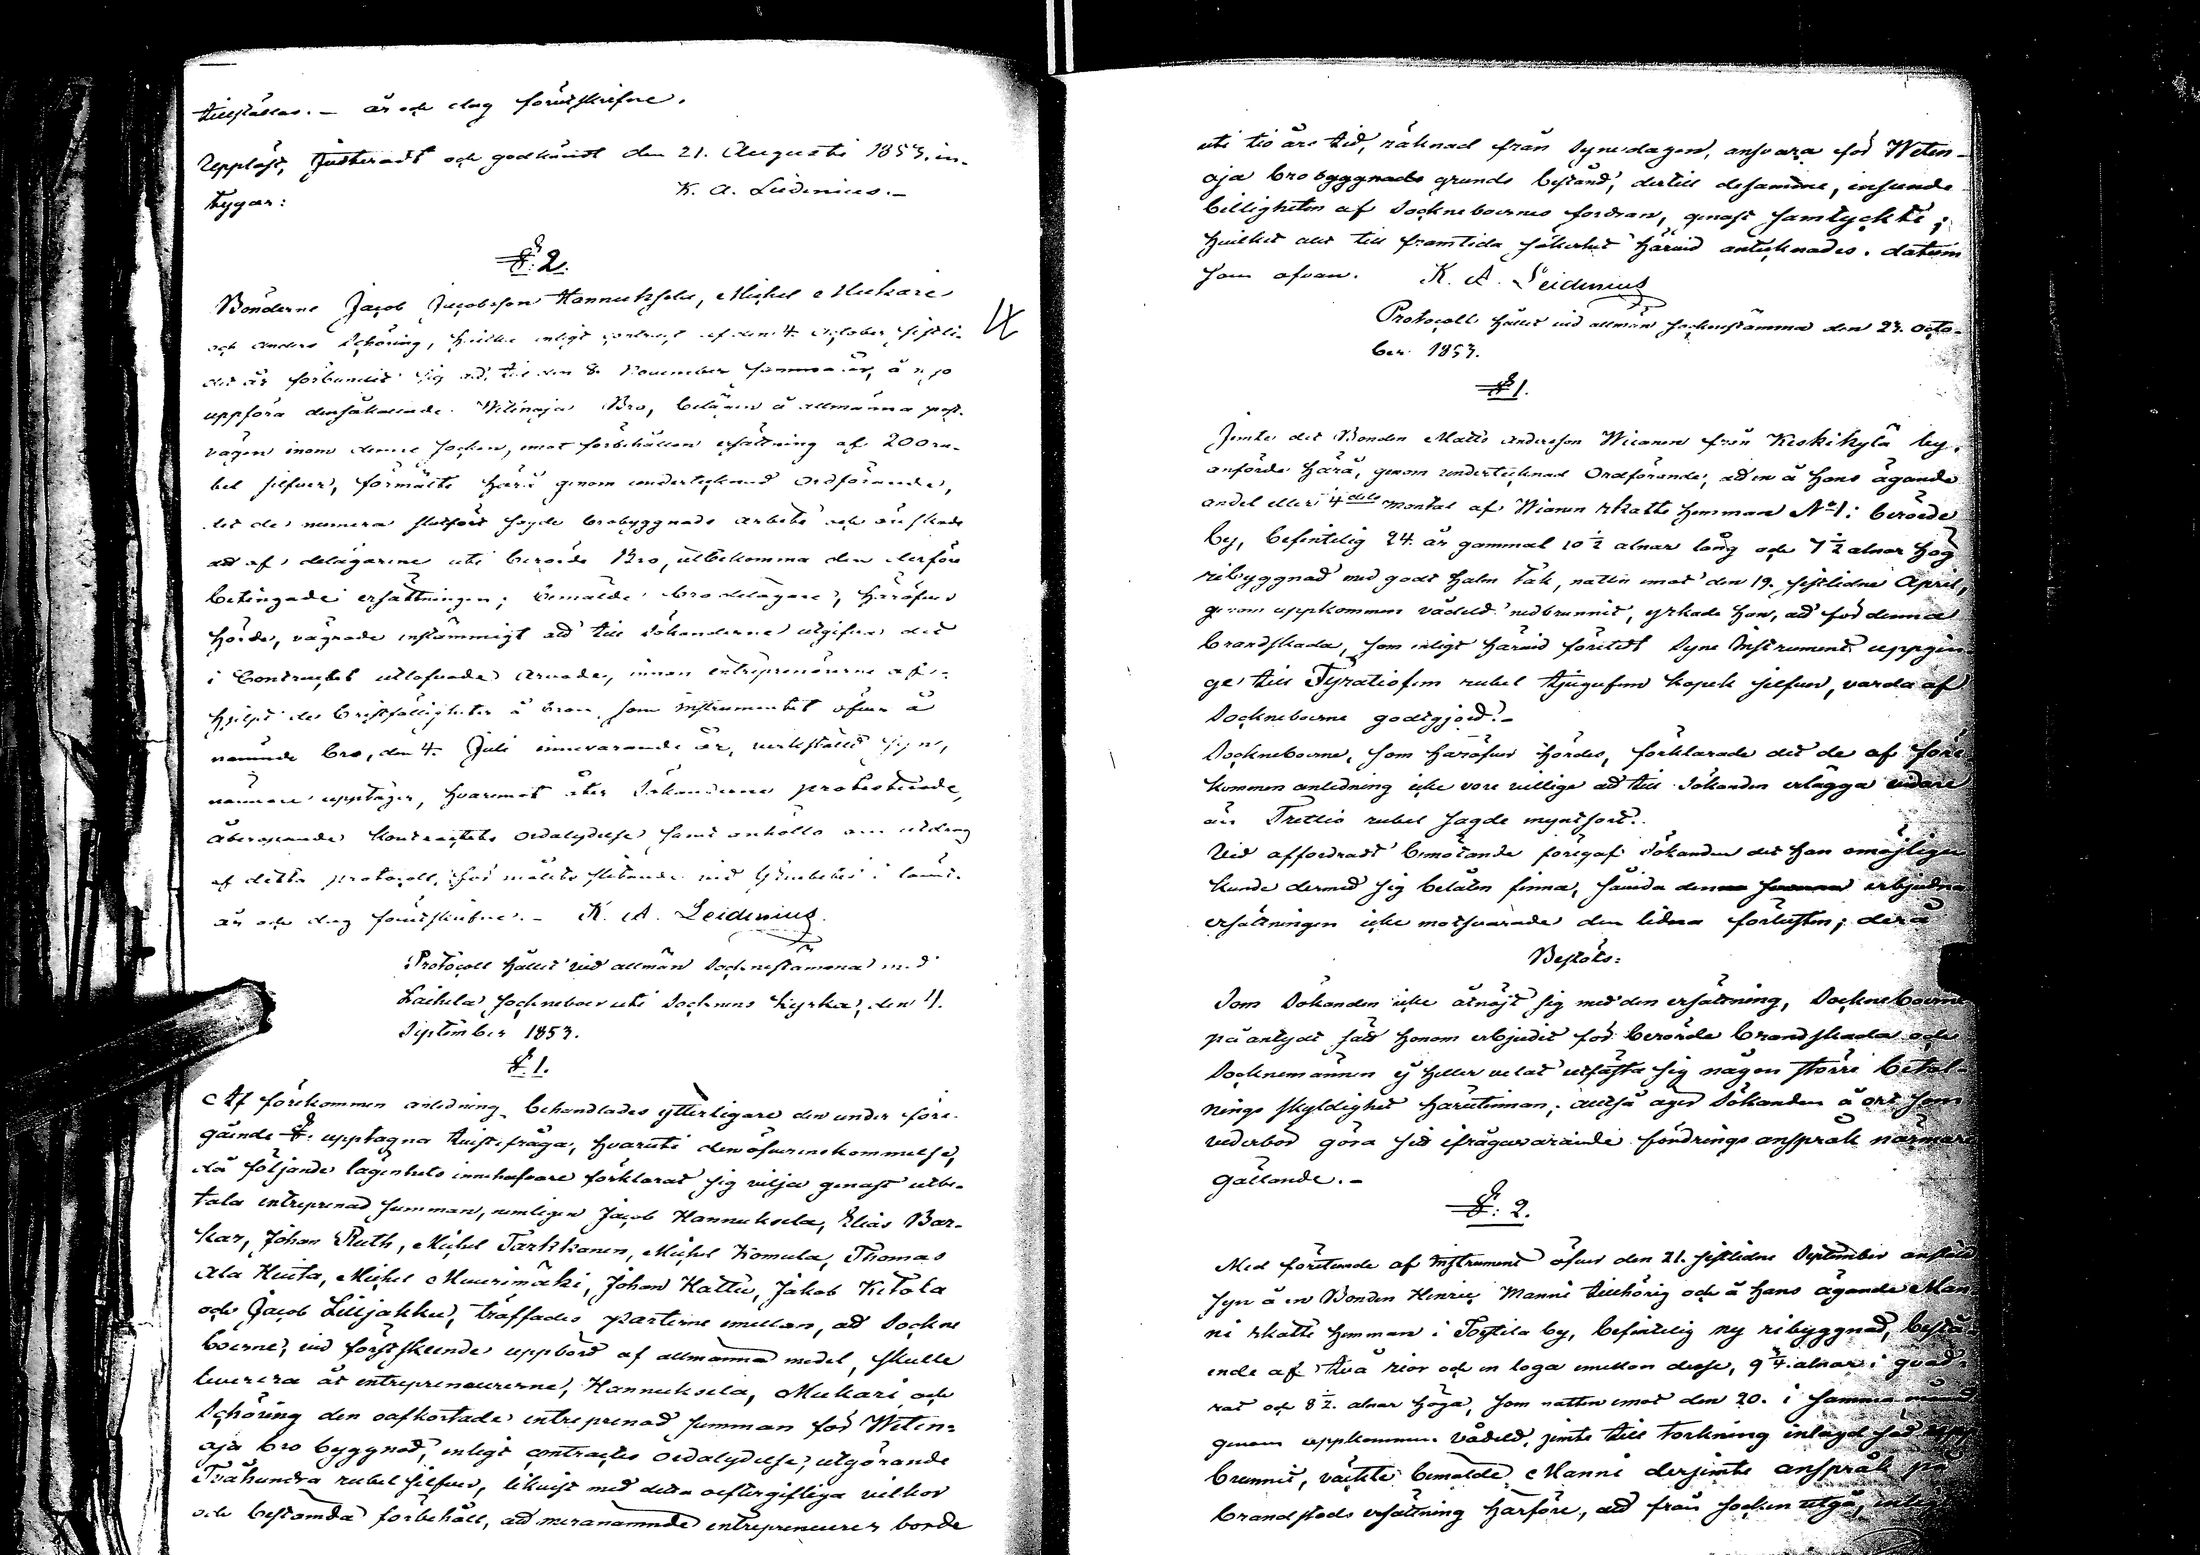 tillställas. – år och dag förutskrifne.
Uppläst, Justeradt och godkändt den 21. Augusti 1853, in-
tygar:
K. A. Leidenius. –
§. 2.
Bönderne Jacob Jacobsson Hannuksela, Michel Mukari
och Anders Schöring, hvilke enligt contract af den 4. October sistli-
det år förbundit sig att till den 8. November samma år, å nyo
uppföra den såkallade Witinoja Bro, belägen å allmänna post-
vägen inom denne Socken, emot förbehållen ersättning af 200 ru-
bel silfver, förmälte härå genom undertecknad Ordförande,
det de numera slutfört sagde brobyggnads arbete och önskade
att af delägarene uti berörde Bro, utbekomma den derföre
betingade ersättningen; bemälde bro delägare, häröfver
hörde, vägrade enstämmigt att till Sökanderne utgifva det
i Contractet utlofvade arvode, innan entreprenörerne af-
hjelpt de bristfälligheter å bron, som instrumentet öfver å
nämnde bro, den 4. Juli innevarande år, verkställd syn,
närmare upptager, hvaremot åter Sökanderne protesterade,
åberopande Kontractets ordalydelse samt anhöllo om utdrag
af detta protocoll, för målets
år och dag förutskrifne. – K. A. Leidenius.
Protocoll hållit vid allmän Socknestämma med
Laihela Socknebor uti Socknens Kyrka, den 11.
September 1853.
§. 1.
Af förekommen anledning behandlades ytterligare den under före-
gående §: upptagna tvistefråga, hvaruti den öfverenskommelse,
då följande lägenhets innehafvare förklarat sig vilja genast utbe-
tala entreprenad summan, nemligen Jacob Hannuksela, Elias Bar-
kar, Johan Ruth, Michel Tarkkanen, Michel Komula, Thomas
Ala Huita, Michel Muurimäki, Johan Hattu, Jakob Kitola
och Jacob Lilljakku, träffades parterne emellan, att Sockne
boerne, vid först skeende uppbörd af allmänna medel, skulle
leverera åt entrepreneurerne, Hannuksela, Mukari och
Schöring den oafkortade entreprenad summan för Witin-
oja bro byggnad, enligt contractes ordalydelse, utgörande
Tvåhundra rubel silfver, likvist med detta oeftergifliga vilkor
och bestämda förbehåll, att meranämnde entrepreneurer borde
uti tio års tid, räknad från Synedagen, ansvara för Witin-
oja bro byggnads grunds bestånd, dertill desamme, inseende
billigheten af Socknebornes fordran, genast samtyckte;
hvilket allt till framtida säkerhet härvid antecknades. datum
som ofvan. K. A. Leidenius
Protocoll hållet vid allmän Sockenstämma den 23. Octo-
ber 1853.
§ 1.
Jemte det Bonden Matts Andersson Wiianen från Keskikylä by,
anförde härå, genom undertecknad Ordförande, att en å hans ägande
andel eller 1/4 dels mantal af Wianen skatte hemman No 1: i berörde
by, befintelig 24. år gammal 10 1/2 alnar lång och 7 1/2 alnar hög
ribyggnad med godt halm tak, natten emot den 19. sistlidne April,
genom uppkommen vådeld nedbrunnit, yrkade han, att för denna
brandskada, som enligt härvid företedt Syne Instrument uppgin-
ge till Fyratiofem rubel tjugufem kopek silfver, varda af
Sockneboerne godtgjord. –
Socknebooerne, som häröfver hördes, förklarade det de af före-
kommen anledning icke vore villige att till Sökanden erlägga vidare
än Trettio rubel sagde myntsort.
Vid affordradt bemötande föregaf Sökanden det han omöjligen
kunde dermed sig belåten finna, såvida den erbjudna
ersättningen icke motsvarade den lidna förlusten; derå
Beslöts:
Som Sökanden icke åtnöjt sig med den ersättning, Socknebоerne
på antydt sätt honom erbjudit för berörde brandskada och
Socknemännen ej heller velat utfästa sig någon större betal-
nings skyldighet härutinnan; alltså äger Sökanden å ort som
vederbör göra sit ifrågavarande fordrings anspråk närmare
gällande. –
§. 2.
Med företeende af Instrument öfver den 21. sistlidne September anstäld
syn å en Bonden Henric Manni tillhörig och å hans ägande Man-
ni skatte hemman i Tostila by, befintelig ny ribyggnad, bestå-
ende af två rior och en loga emellan desse, 9 3/4 alnar i qvad-
rat och 8 1/2. alnar höga, som natten emot den 20. i samma månad
genom uppkommen vådeld, jemte till torkning inlagd säd upp-
brunnit, väckte bemälde Manni derjemte anspråk på
brandstods ersättning härföre, att från Socken utgå, enligt